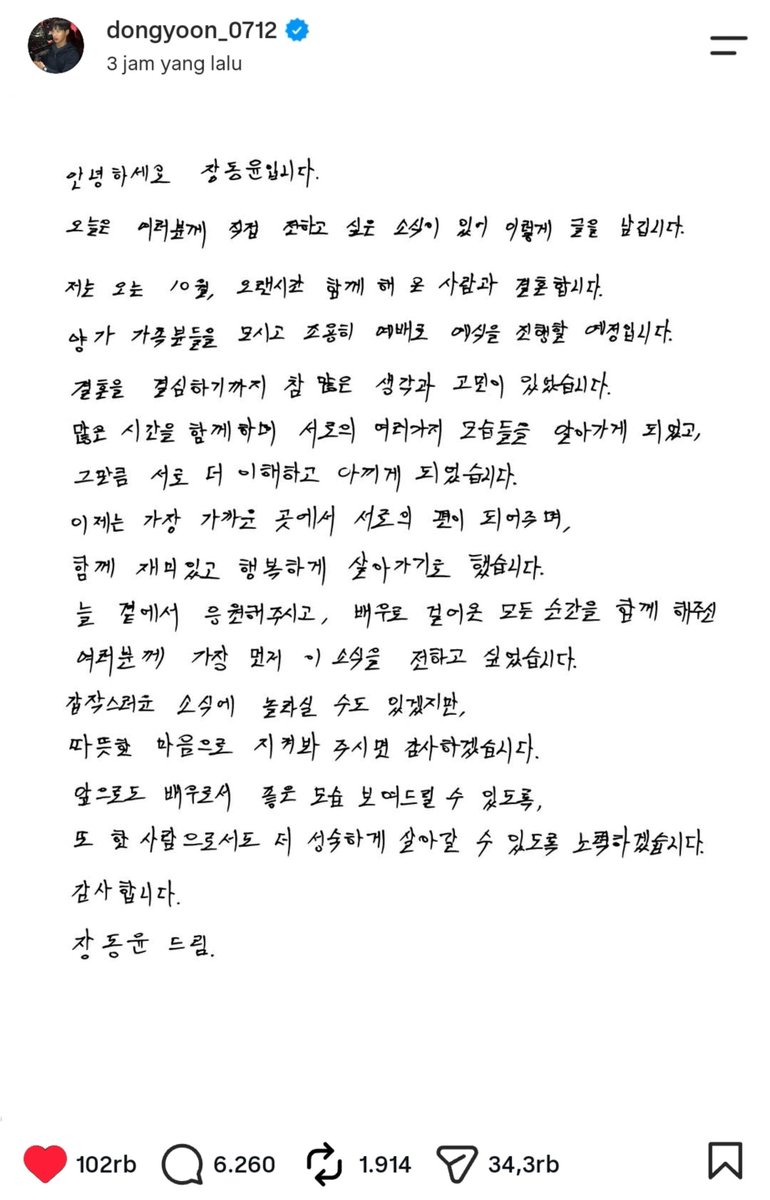 dongyoon_0712
3 jam yang lalu
안녕하세요 장동윤입니다.
오늘은 여러분께 직접 전하고 싶은 소식이 있어 이렇게 글을 남깁니다.
저는 오는 10월, 오랜시간 함께 해 온 사람과 결혼합니다.
양가 가족분들을 모시고 조용히 예배로 예식을 진행할 예정입니다.
결혼을 결심하기까지 참 많은 생각과 고민이 있었습니다.
많은 시간을 함께하며 서로의 여러가지 모습들을 알아가게 되었고,
그만큼 서로 더 이해하고 아끼게 되었습니다.
이제는 가장 가까운 곳에서 서로의 편이 되어주며,
함께 재미있고 행복하게 살아가기로 했습니다.
늘 곁에서 응원해주시고, 배우로 걸어온 모든 순간을 함께 해주신
여러분께 가장 먼저 이 소식을 전하고 싶었습니다.
갑작스러운 소식에 놀라실 수도 있겠지만,
따뜻한 마음으로 지켜봐 주시면 감사하겠습니다.
앞으로도 배우로서 좋은 모습 보여드릴 수 있도록,
또 한 사람으로서도 더 성숙하게 살아갈 수 있도록 노력하겠습니다.
감사합니다.
장동윤 드림.
102rb 6.260 1.914 34,3rb